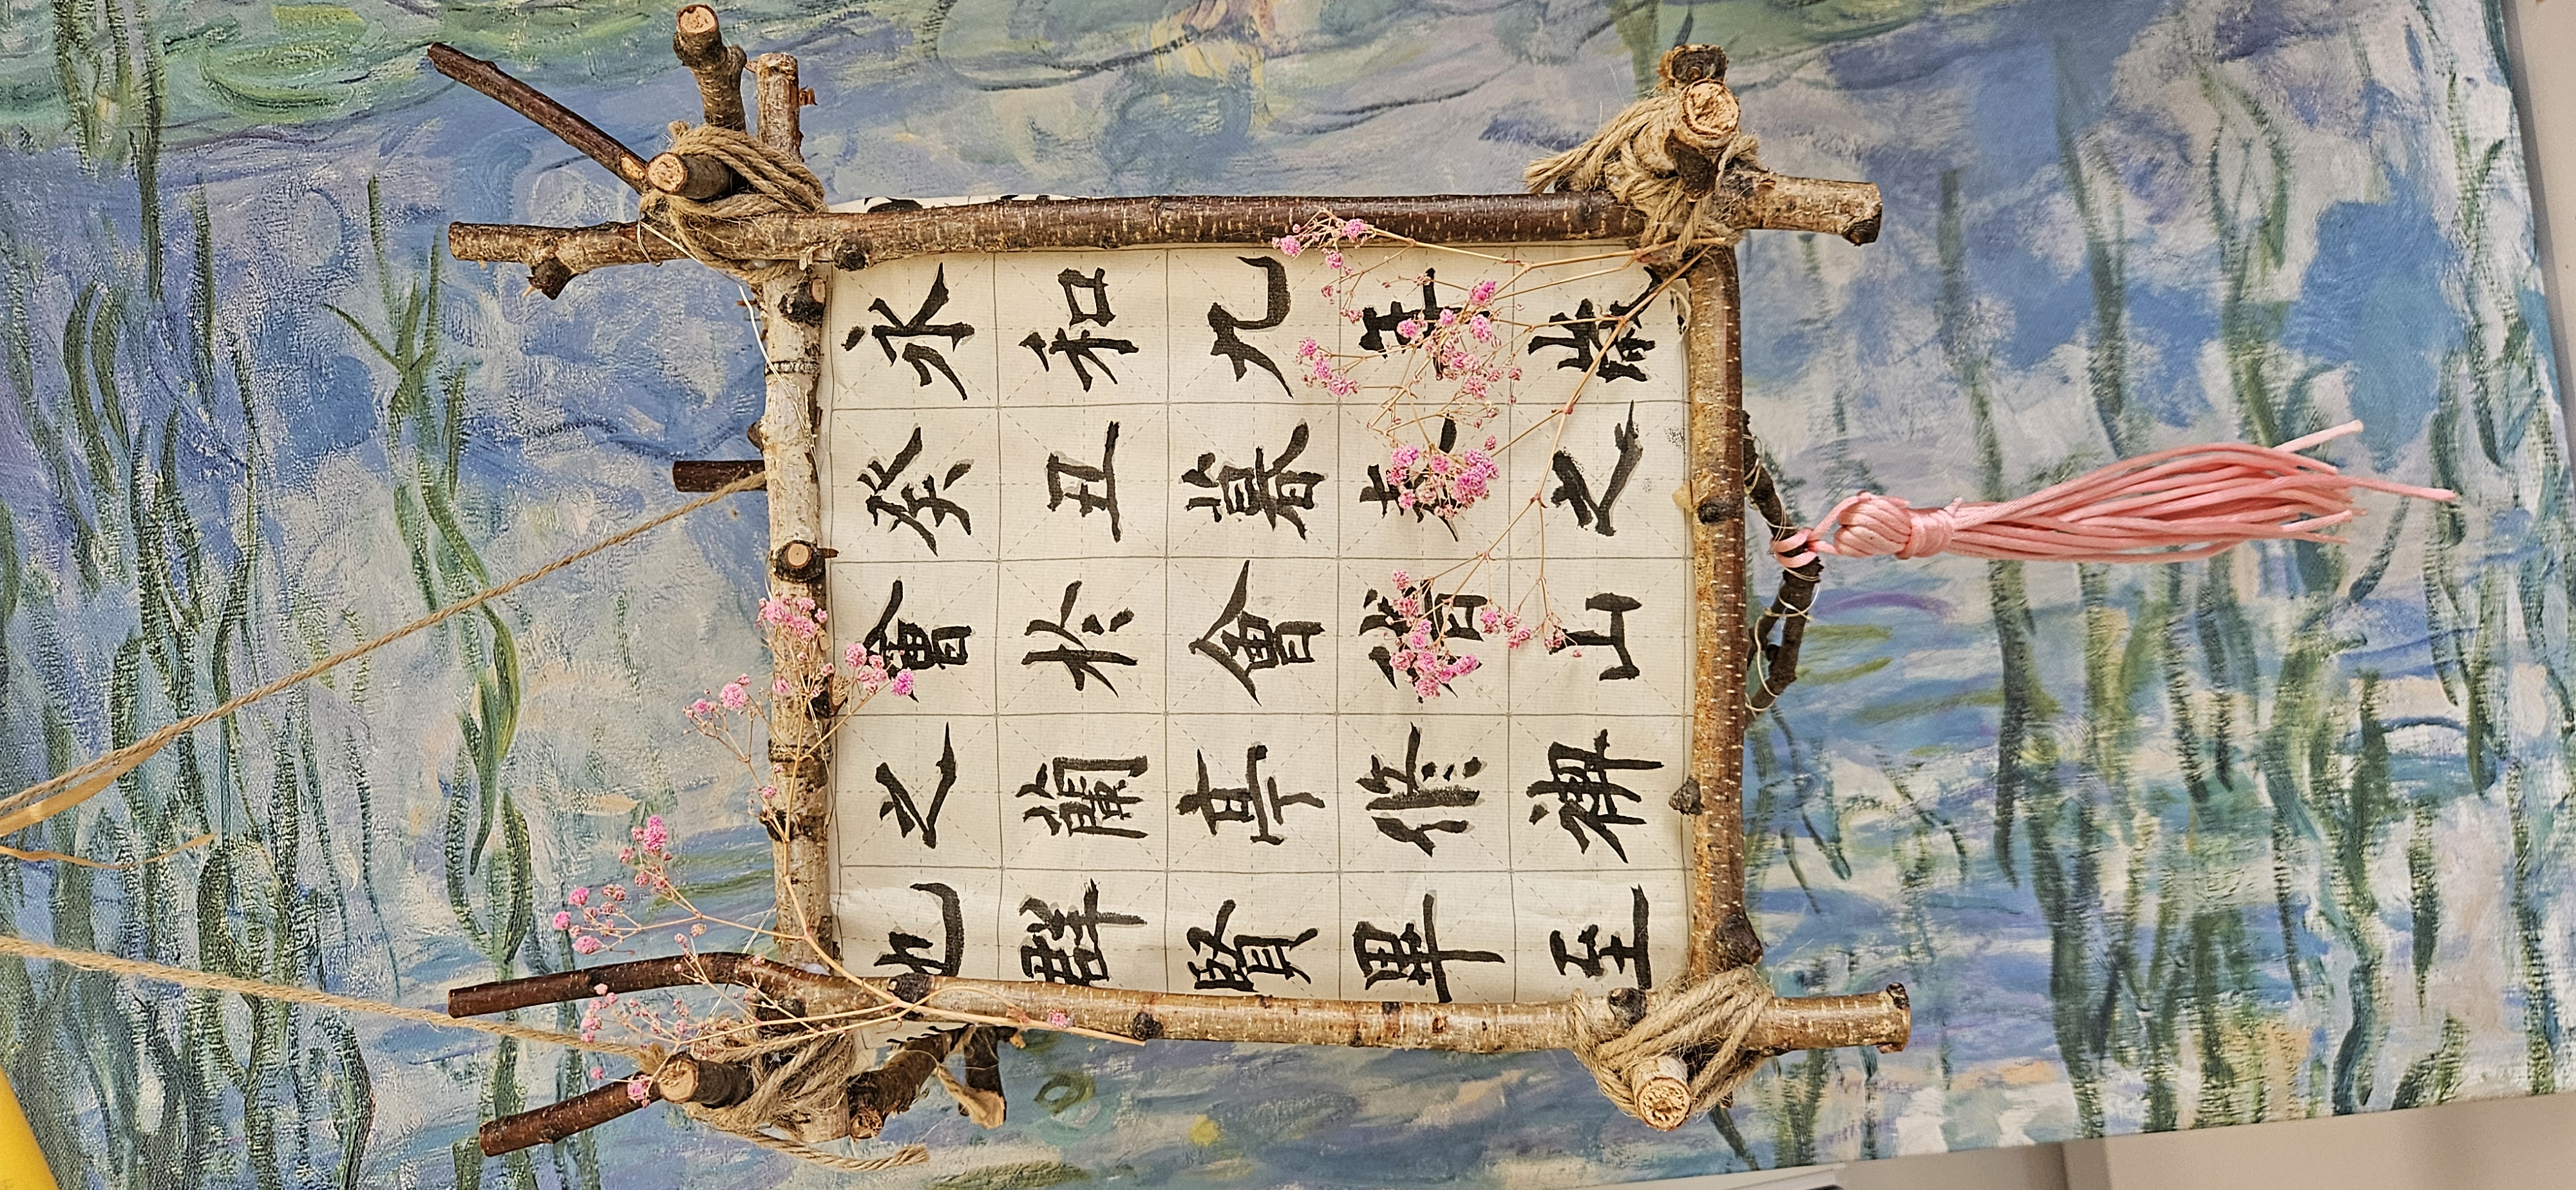 永和九年歲
癸丑暮春之
會於會稽山
之蘭亭修禊
也群賢畢至